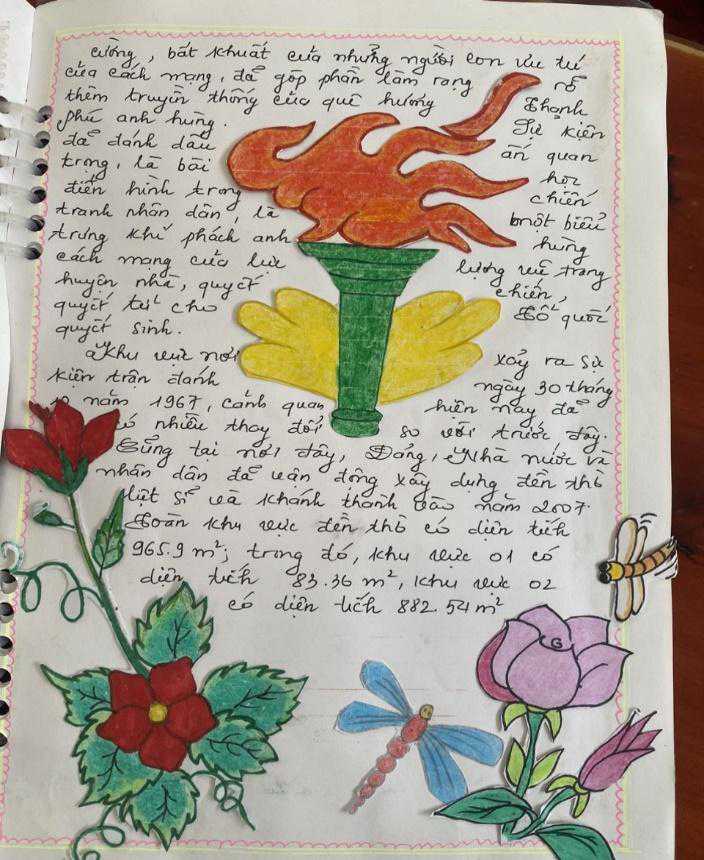 cường, bất khuất của những người con ưu tú
của cách mạng, đã góp phần làm rạng rỡ
thêm truyền thống của quê hương Thạnh
phú anh hùng. Sự kiện
đã đánh dấu ấn quan
trọng, là bài học
điển hình trong chiến
tranh nhân dân, là một biểu
trưng khí phách anh hùng
cách mạng của lực lượng vũ trang
huyện nhà, quyết chiến,
quyết tử cho Tổ quốc
quyết sinh.
Khu vực nơi xảy ra sự
kiện trận đánh ngày 30 tháng
10 năm 1967, cảnh quan hiện nay đã
có nhiều thay đổi so với trước đây.
Cũng tại nơi đây, Đảng, Nhà nước và
nhân dân đã vận động xây dựng đền thờ
liệt sĩ và khánh thành vào năm 2007.
Toàn khu vực đền thờ có diện tích
965.9 m²; trong đó, khu vực 01 có
diện tích 83.36 m², khu vực 02
có diện tích 882.54 m²